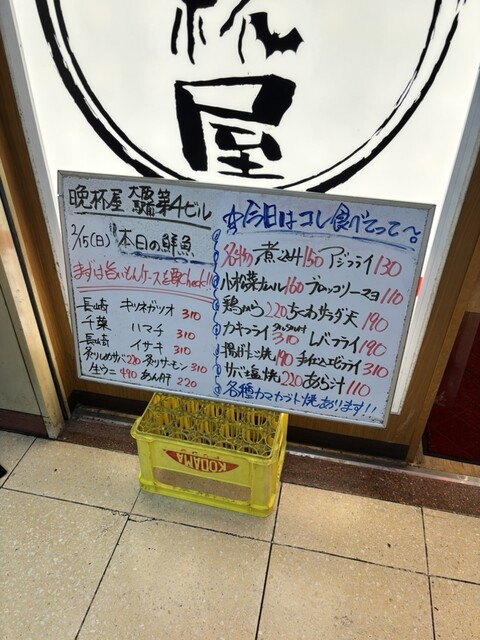 杯
屋
晩杯屋 大阪駅前第4ビル
2/15(日) 本日の鮮魚
まずは旨いもんケースを要check!!
長崎 キツネガツオ 310
千葉 ハマチ 310
長崎 イサキ 310
炙りしめサバ 220 炙りサーモン 310
生ウニ 490 あん肝 220
☆今日はコレ食べてって〜。
名物 煮込み 150 アジフライ 130
小松菜ナムル 160 ブロッコリーマヨ 110
鶏から 220 ちくわサラダ天 190
カキフライ タルタル付 310 レバフライ 190
揚げ出し 190 手仕込エビフライ 310
サバ塩焼 220 あら汁 110
各種カマカブト焼あります!!
KODAMA